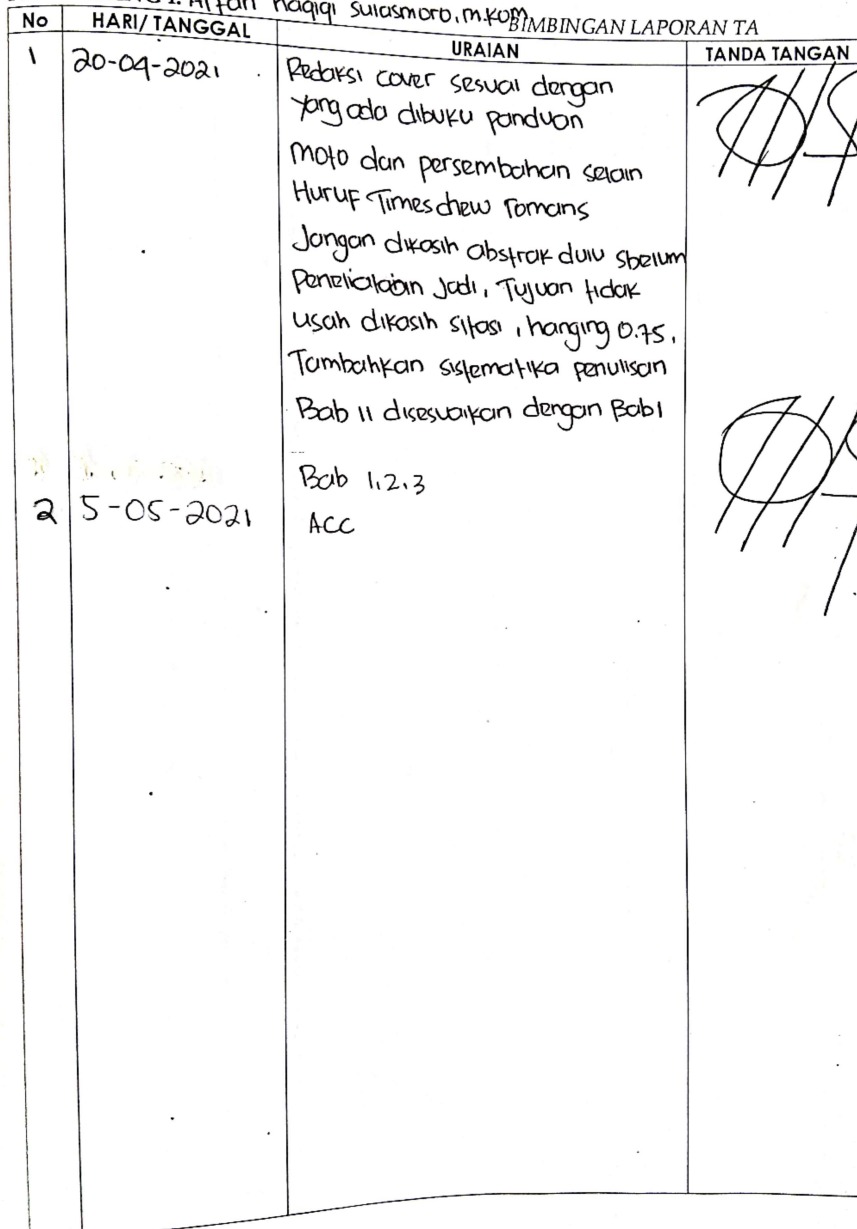 Haqiqi Sulasmoro, M.Kom
BIMBINGAN LAPORAN TA
No HARI/TANGGAL URAIAN TANDA TANGAN
1 20-04-2021 Redaksi cover sesuai dengan
yang ada dibuku panduan
Moto dan persembahan selain
Huruf Times chew romans
Jangan dikasih abstrak dulu sbelum
jadi, Tujuan tidak
usah dikasih sitasi, hanging 0.75,
Tambahkan sistematika penulisan
Bab II disesuaikan dengan Bab 1
Bab 1,2,3
2 5-05-2021 ACC